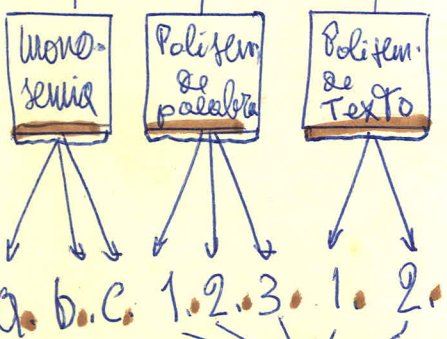 mono-
semia
Polisem.
de
palabra
Polisem.
de
Texto
a. b. c. 1. 2. 3. 1. 2.